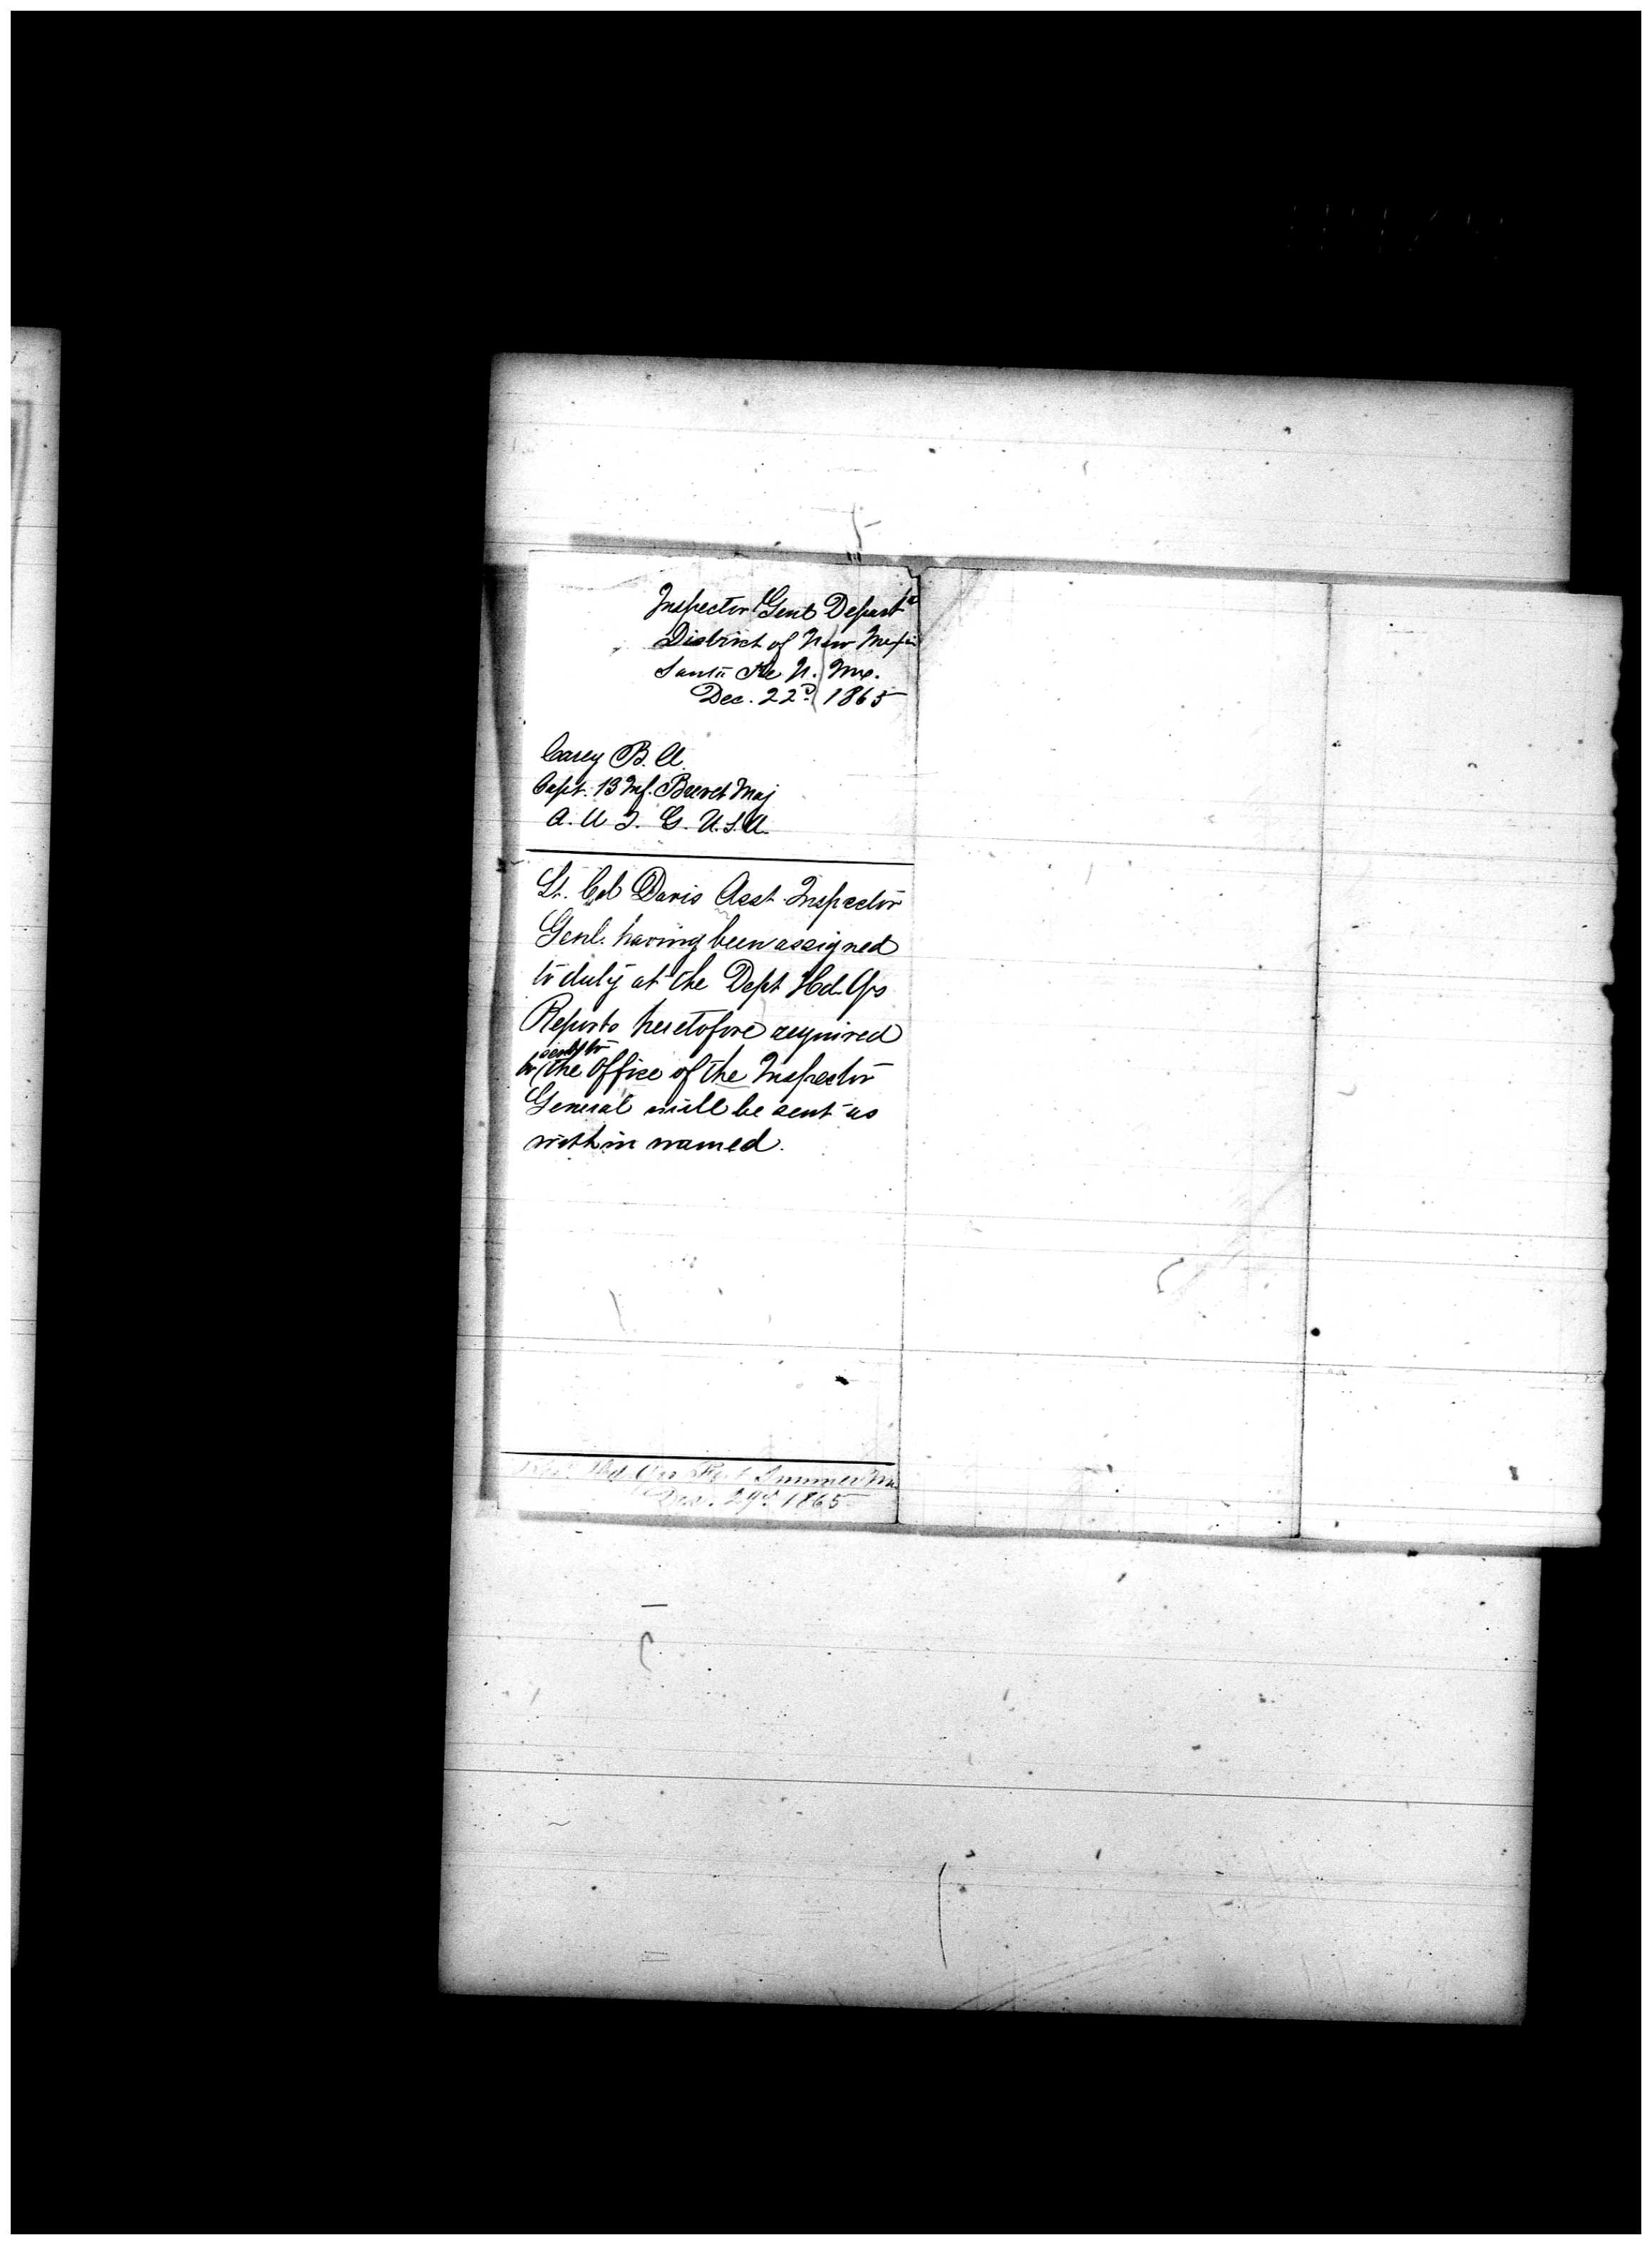 Inspector Genl Depart
District of New Mexico
Santa Fe N. Mex.
Dec. 22d 1865
Casey B. A.
Capt. 13 Inf. Brevet Maj
A. A I. G. U.S.A.
Lt. Col Davis Asst Inspector
Genl. having been assigned
to duty at the Dept Hd. Qrs
Reports heretofore required
sent to
to the Office of the Inspector
General will be sent as
within named.
Hd. Qrs Fort Sumner N.M.
Dec. 29th 1865